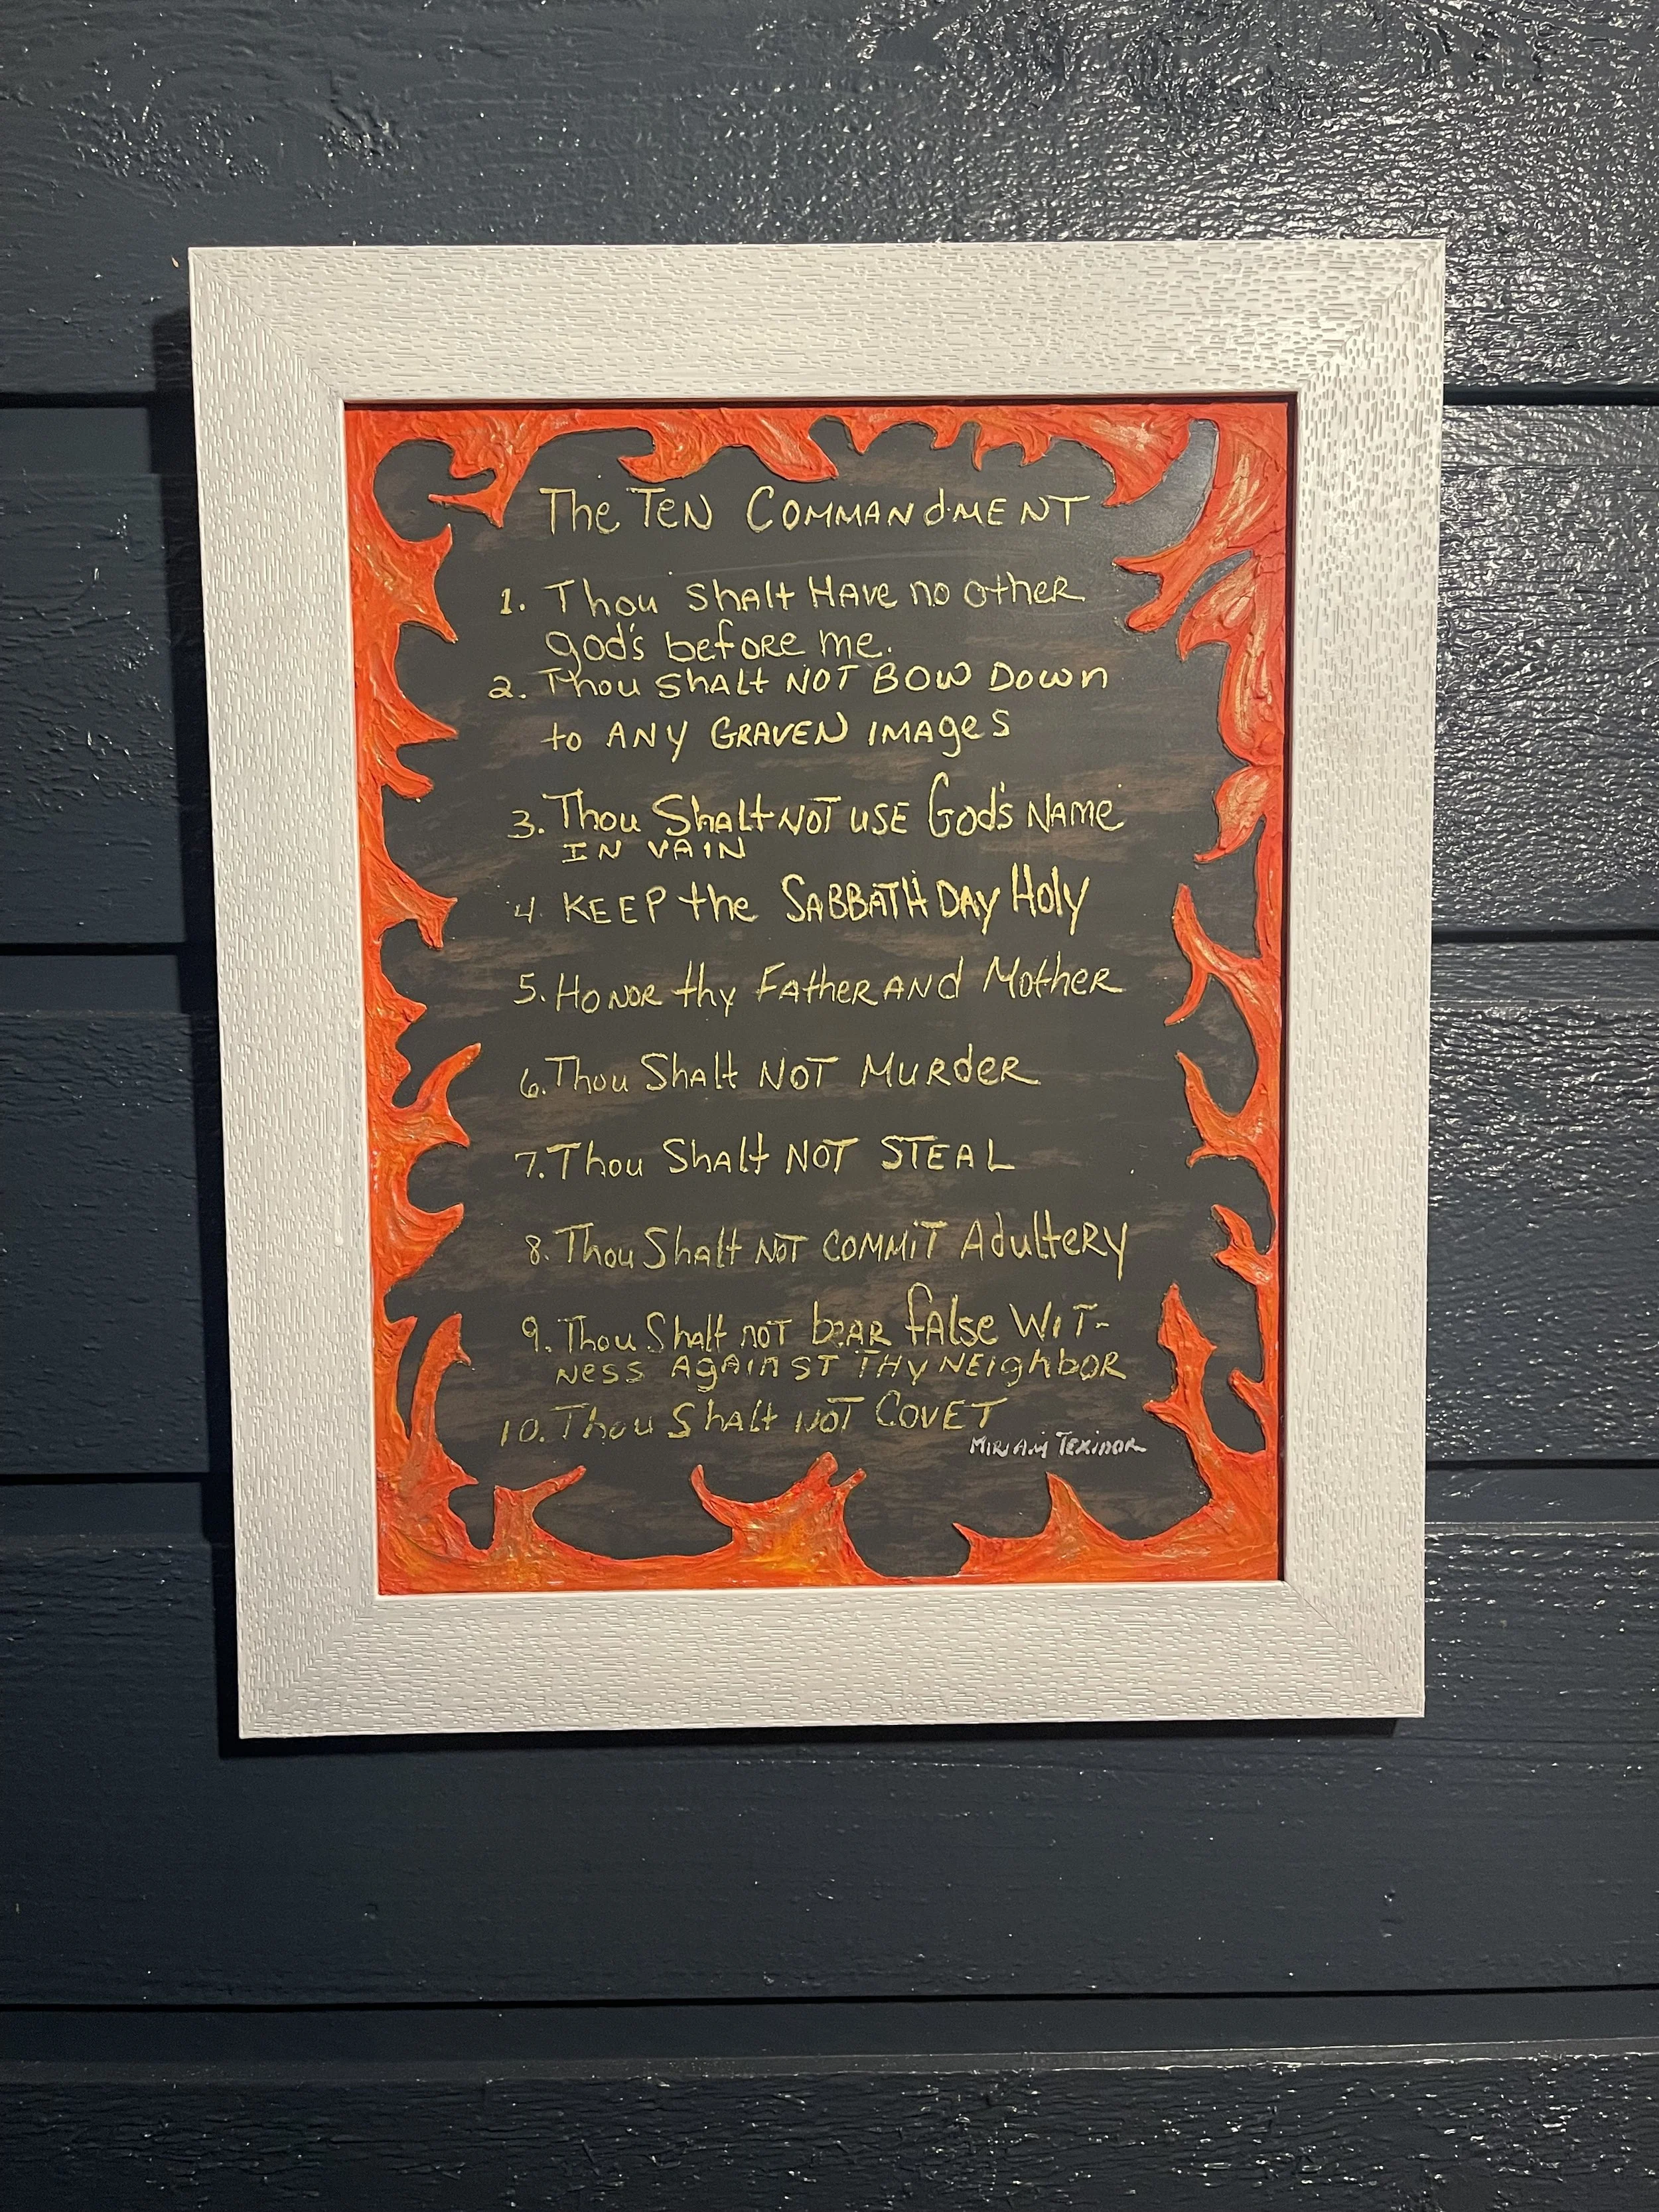 The Ten Commandment
1. Thou shalt Have no other
god's before me.
2. Thou shalt NOT BOW DOWN
to ANY GRAVEN IMAGES
3. Thou Shalt NOT USE God's NAME
IN VAIN
4 KEEP the SABBATH DAY Holy
5. HONOR thy Father AND Mother
6. Thou Shalt NOT MURDER
7. Thou Shalt NOT STEAL
8. Thou Shalt NOT COMMIT Adultery
9. Thou Shalt not bEAR false WIT-
NESS AGAINST THY NEIGHBOR
10. Thou Shalt NOT COVET